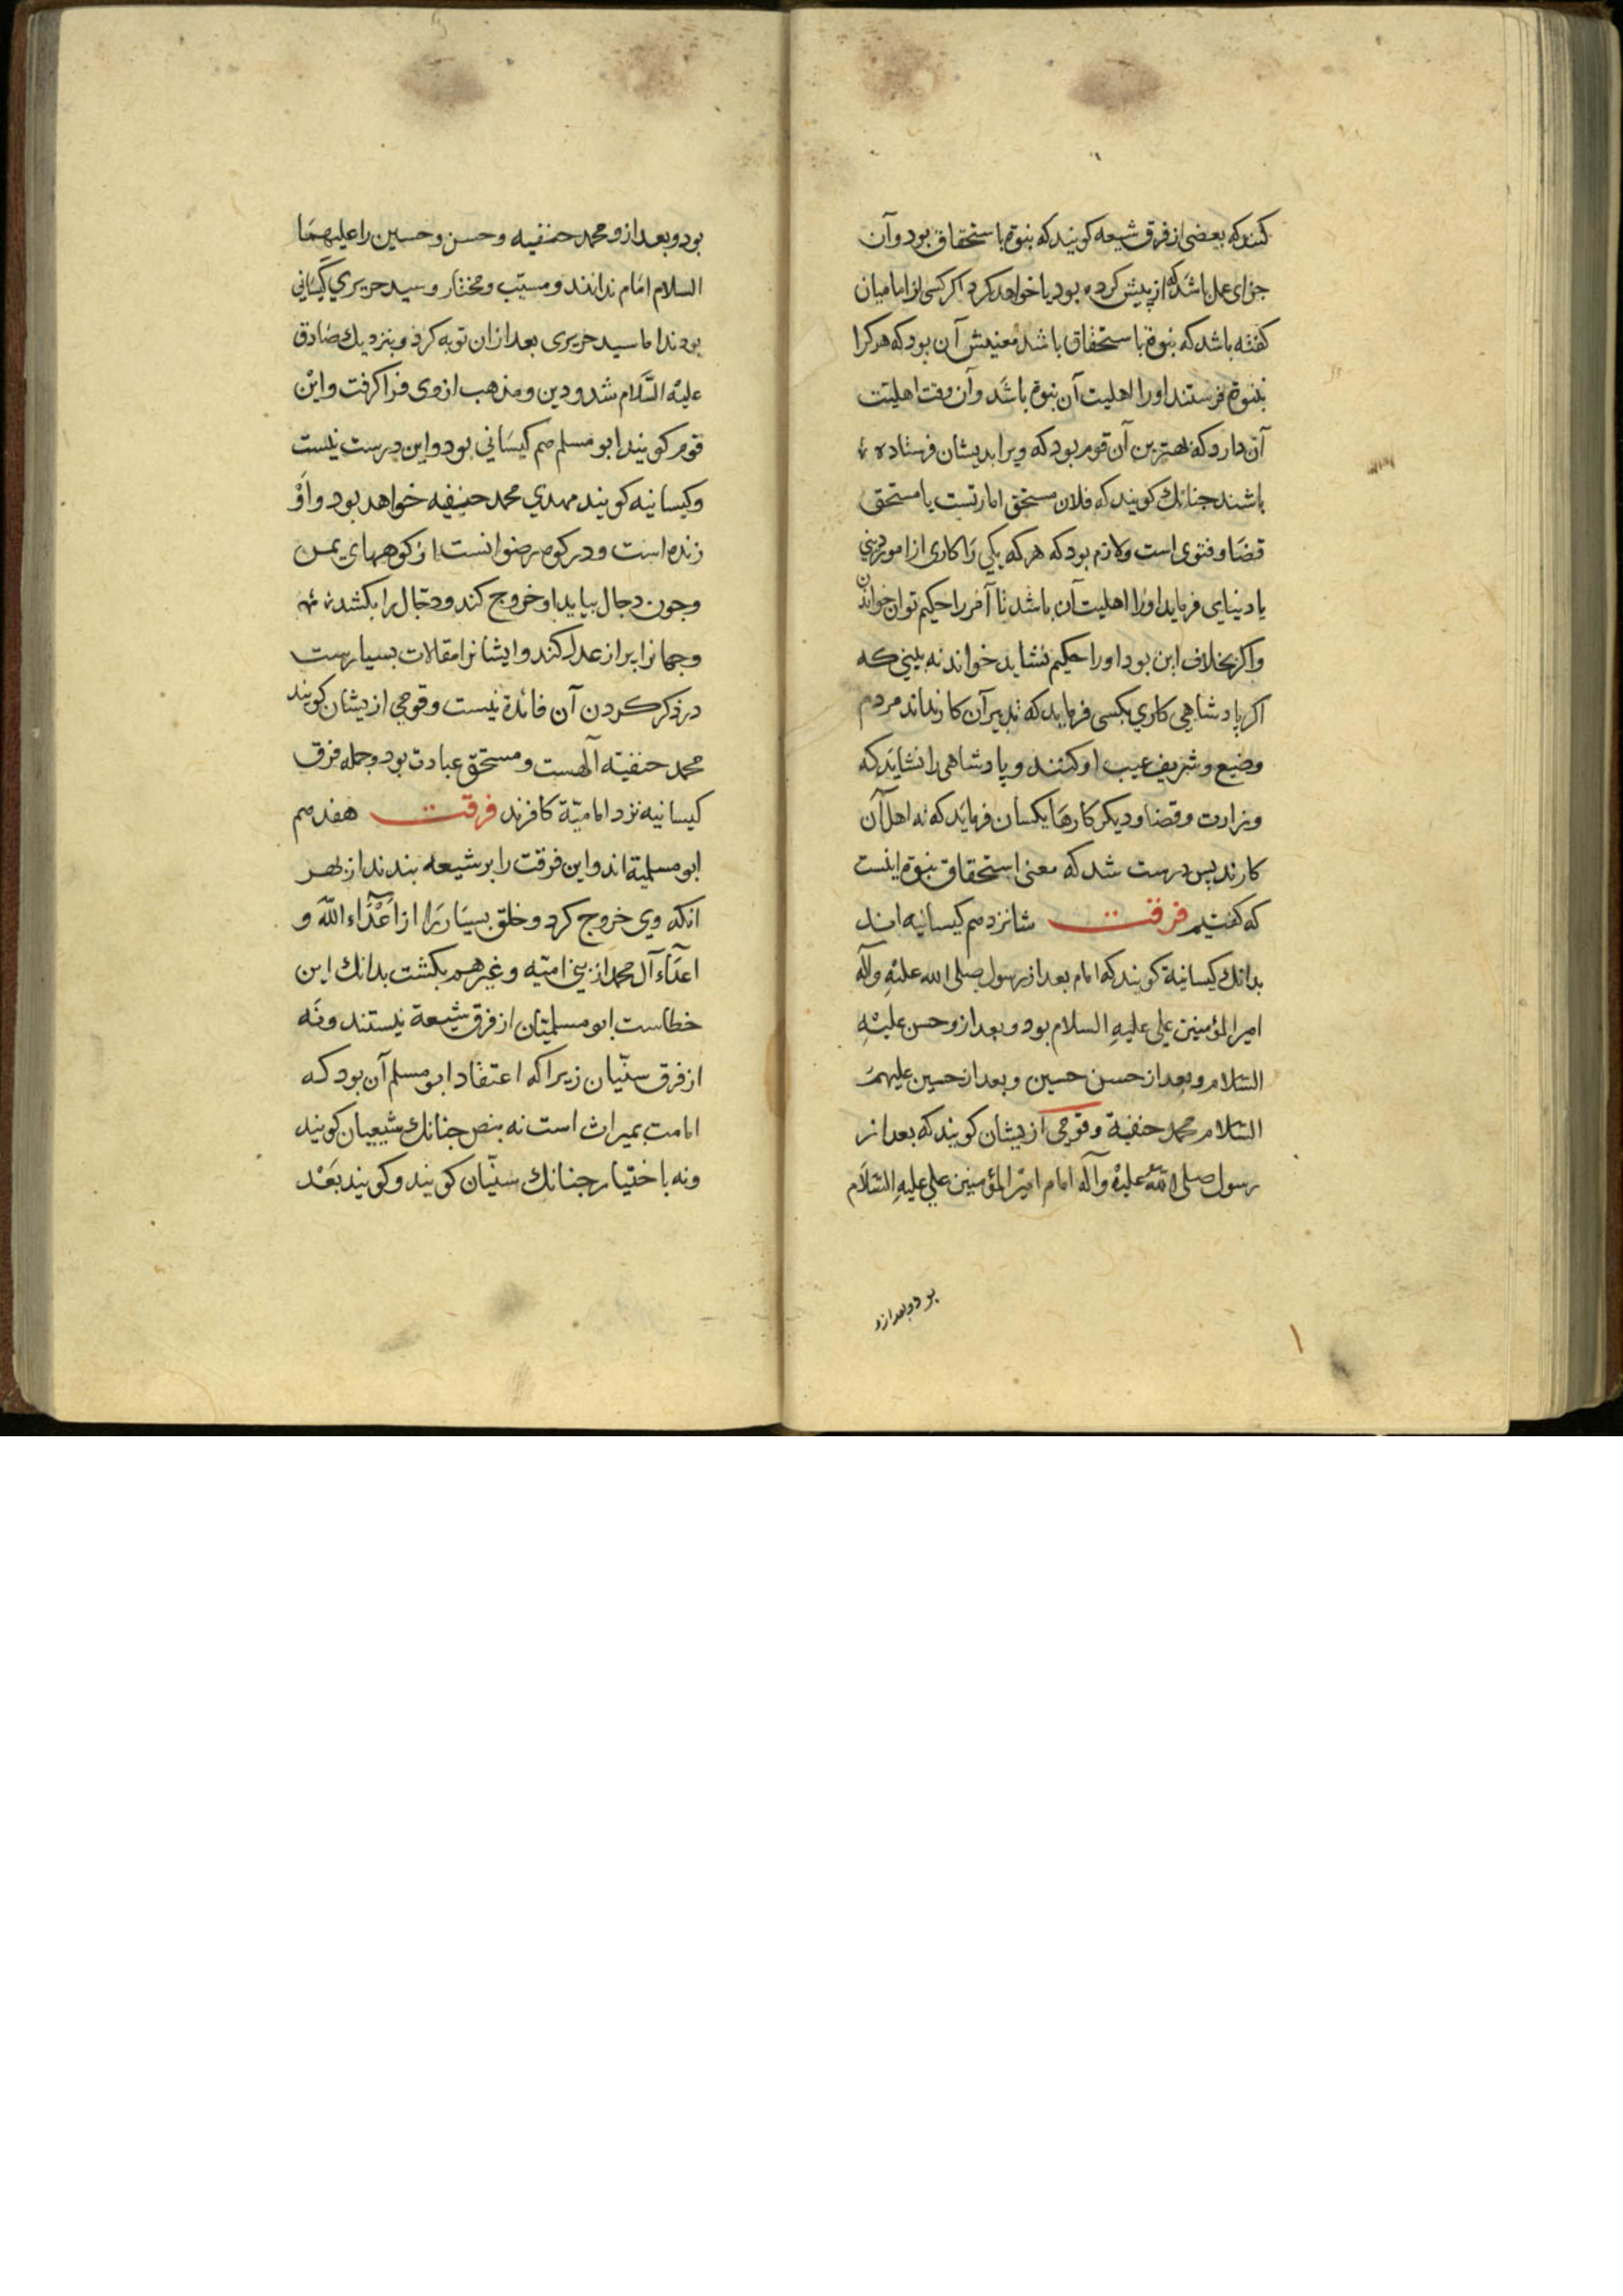 کنند که بعضی از فرق شیعه کویند که بنوة باستحقاق بود وآن
جزای عمل باشد که از پیش کرده بود یا خواهد کرد اکر کسی از امامیان
کفته باشد که بنوة باستحقاق باشد معنیش آن بود که هر کرا
بنبوة فرستند اورا اهلیت آن بنوة باشد وآن وقت اهلیت
آن دارد که بهترین آن قوم بود که ویرا بدیشان فرستاده
باشند جنانك کویند که فلان مستحق امارتست یا مستحق
قضا وفتوی است ولازم بود که هر که یکی را کاری از امور دینی
یا دنیایی فرماید اورا اهلیت آن باشد تا آمر را حکیم توان خواندن
واکر بخلاف این بود اورا حکیم نشاید خواند نه بینی که
اکر پادشاهی کاری بکسی فرماید که تدبیر آن کار نداند مردم
وضیع وشریف عیب او کنند و پادشاهی را نشاید که
وزارت وقضا ودیکر کارها بکسان فرماید که نه اهل آن
کارند پس درست شد که معنی استحقاق بنوة اینست
که کفتیم فرقت شانزدهم کیسانیه اند
بدانك کیسانیة کویند که امام بعد از رسول صلی الله علیه وآله
امیرالمؤمنین علی علیه السلام بود وبعد ازو حسن علیه
السلام وبعد از حسن حسین وبعد از حسین علیهم
السلام محمد حنفیة وقومی از یشان کویند که بعد از
رسول صلی الله علیه وآله امام امیرالمؤمنین علی علیه السلام
بود وبعد ازو
بود وبعد ازو محمد حنفیه وحسن وحسین را علیهما
السلام امام ندانند ومسیب ومختار وسید حریری کیسانی
بودند اما سید حریری بعد ازان توبه کرد وبنزدیك صادق
علیه السلام شد ودین ومذهب ازوی فرا کرفت واین
قوم کویند ابو مسلم هم کیسانی بود واین درست نیست
وکیسانیه کویند مهدی محمد حنیفه خواهد بود واو
زنده است ودر کوه رضوانست از کوههای یمن
وجون دجال بیاید او خروج کند ودجال را بکشد
وجهانرا پر از عدل کند وایشانرا مقالات بسیارست
در ذکر کردن آن فائدة نیست وقومی از یشان کویند
محمد حنفیته آلهست ومستحق عبادت بود وجمله فرق
کیسانیه نزد امامیّة کافرند فرقت هفدهم
ابو مسلمیة اند واین فرقت را بر شیعه بندند از بهر
انکه وی خروج کرد وخلق بسیار را از اعداء الله و
اعداء آل محمد از بنی امیّه وغیرهم بکشت بدانك این
خطاست ابو مسلمیّان از فرق شیعة نیستند ونه
از فرق سنّیان زیرا که اعتقاد ابو مسلم آن بود که
امامت بمیراث است نه بنص جنانك شیعیان کویند
ونه باختیار جنانك سنّیان کویند وکویند بعد